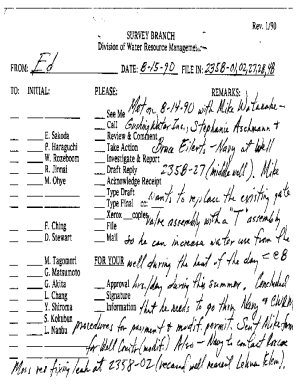 Rev. 1/90
SURVEY BRANCH
Division of Water Resource Management
FROM: Ed DATE: 8-15-90 FILE IN: 2358-01,02,27,28,48
TO: INITIAL: PLEASE: REMARKS:
See Me Met on 8-14-90 with Mike
Call Inc, Stephanie Aschmann &
E. Sakoda Review & Comment
P. Haraguchi Take Action Bruce Eilerts - Navy at Well
W. Rozeboom Investigate & Report
R. Jinnai Draft Reply 2358-27 (middle well). Mike
M. Ohye Acknowledge Receipt
Type Draft wants to replace the existing gate
Type Final
Xerox copies valve assembly with a "T" assembly
E. Ching File
D. Stewart Mail so he can increase water use from the
M. Tagomori FOR YOUR well during the heat of the day
G. Matsumoto
G. Akita Approval day during this summer. Concluded
L. Chang Signature
Y. Shiroma Information that he needs to go thru Navy &
S. Kokubun
L. Nanbu procedures for payment & modif. permit. Sent Mike form
for Well Constr (modif). Also - Navy to contact
Moss re: fixing leak at 2358-02 (recased well nearest